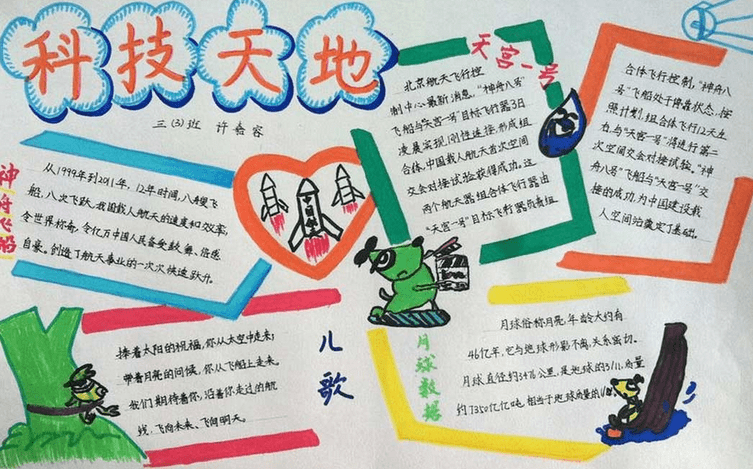 科技天地
三(3)班 许春容
神舟飞船
从1999年到2011年,12年时间,八艘飞
船,八次飞跃,我国载人航天的速度和效率,
令世界称奇,令亿万中国人民备受鼓舞、倍感
自豪,创造了航天事业的一次次快速跃升。
中国航天
天宫一号
北京航天飞行控
制中心最新消息,“神舟八号”
飞船与“天宫一号”目标飞行器3日
凌晨实现刚性连接,形成组
合体,中国载人航天首次空间
交会对接试验获得成功。这
两个航天器组合体飞行器由
“天宫一号”目标飞行器负责组
合体飞行控制,“神舟八
号”飞船处于停靠状态,按
照计划,组合体飞行12天左
右,与“天宫一号”将进行第二
次空间交会对接试验。“神
舟八号”飞船与“天宫一号”交
接的成功,为中国建设载
人空间站奠定了基础。
儿歌
捧着太阳的祝福,你从太空中走来,
带着月亮的问候,你从飞船上走来。
我们期待着你,沿着你走过的航
线,飞向未来、飞向明天。
月球数据
月球俗称月亮,年龄大约有
46亿年,它与地球形影不离,关系密切。
月球直径约3476公里,是地球的3/11,质量
约7350亿亿吨,相当于地球质量的1/81